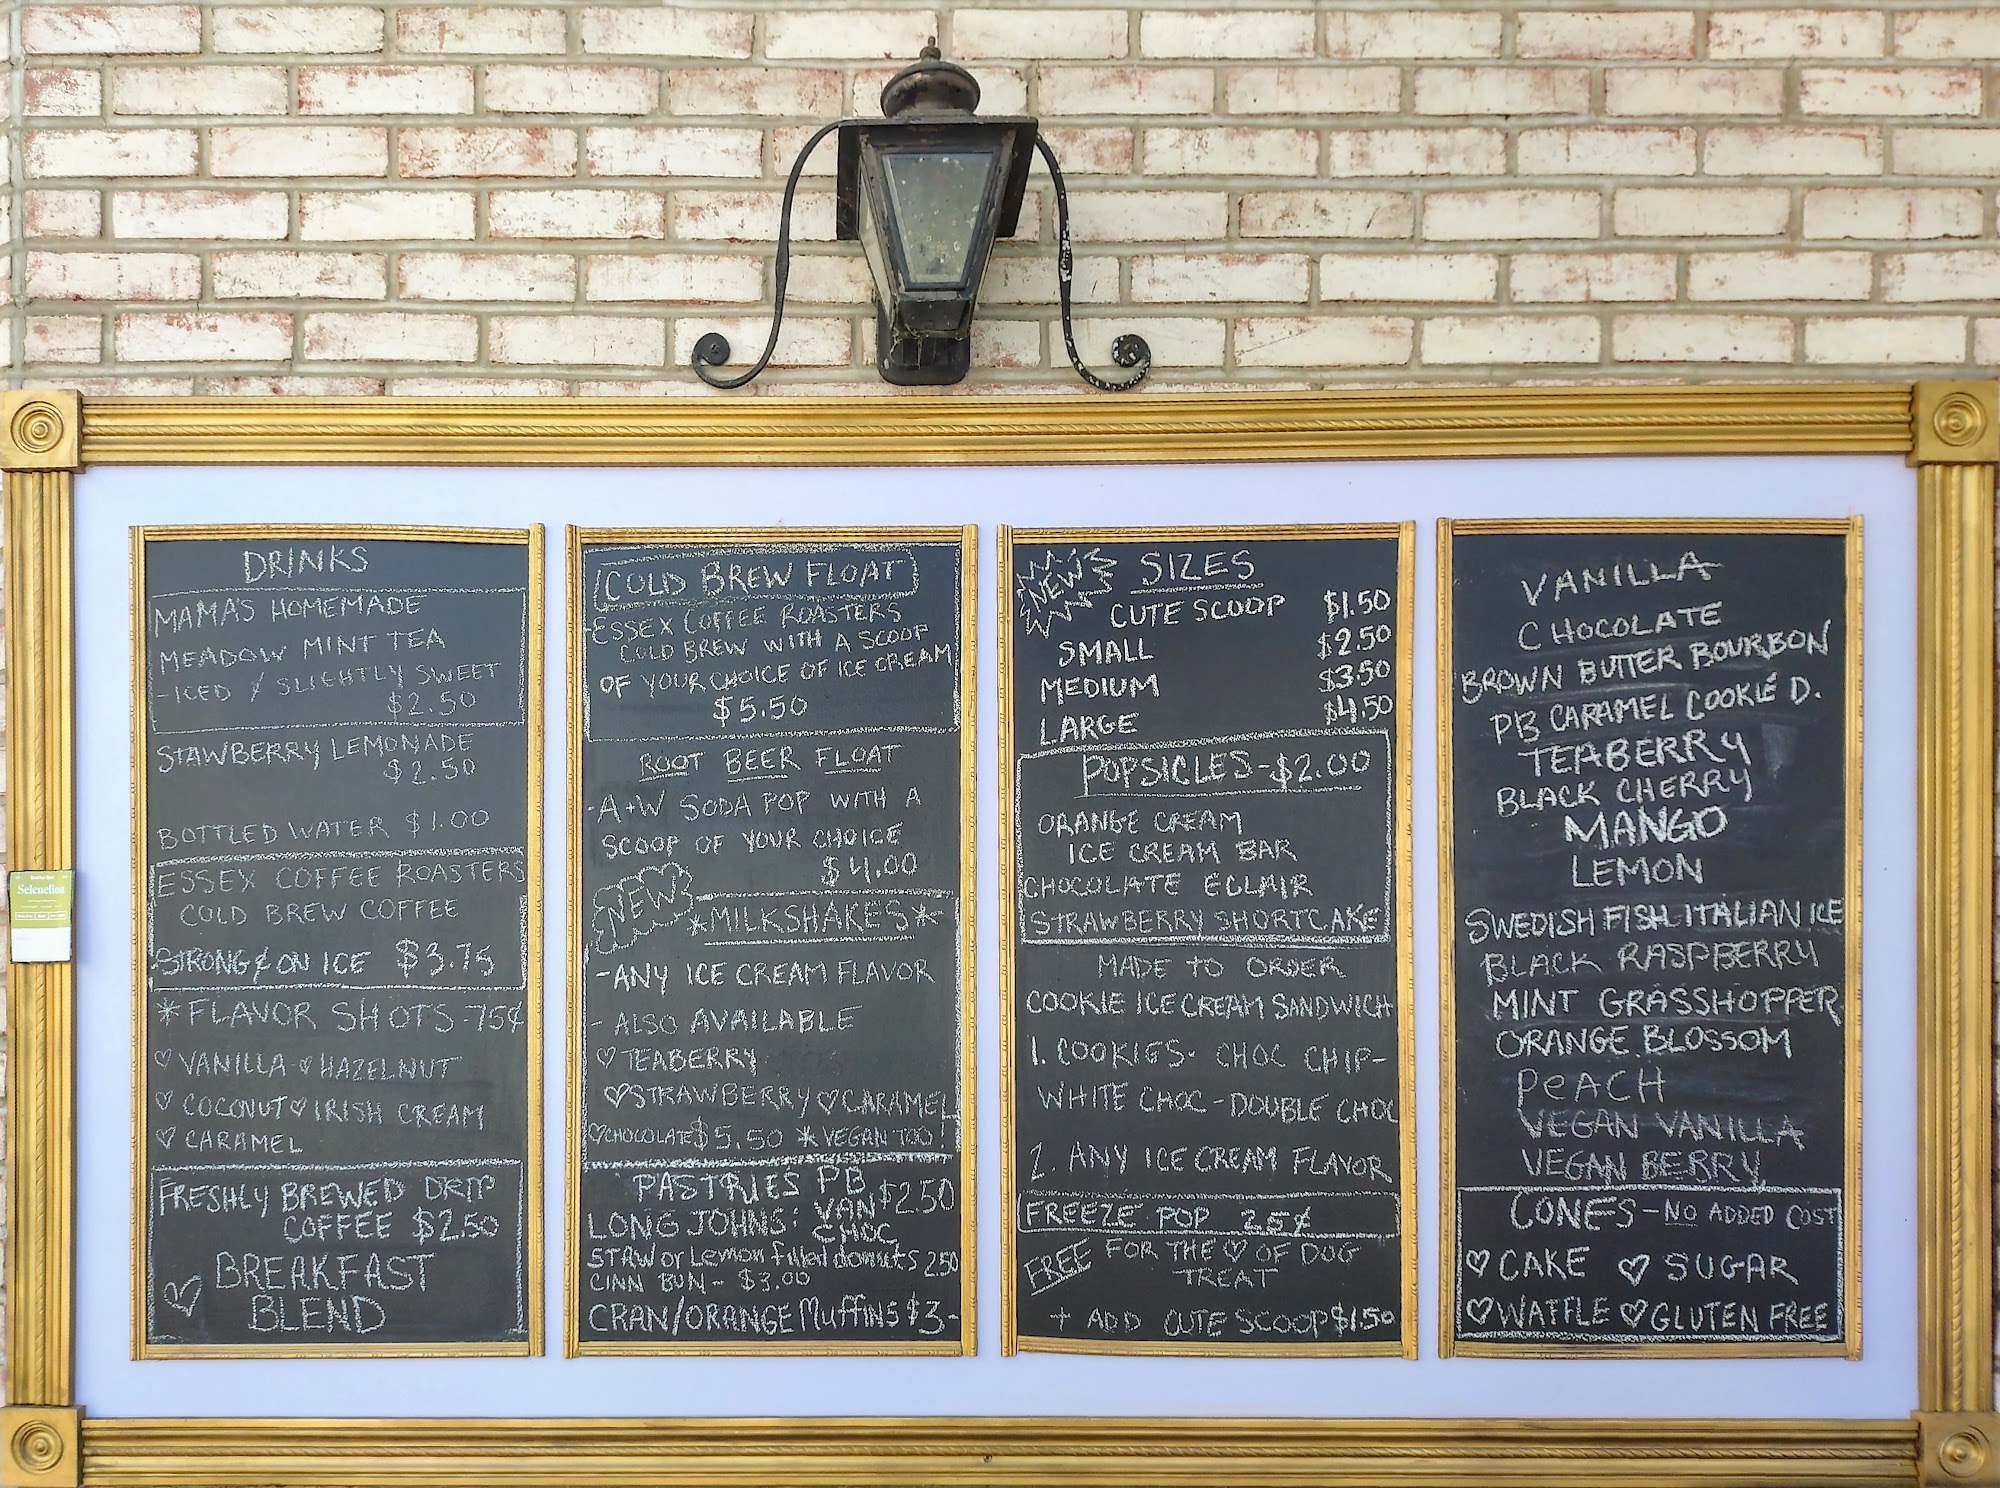 DRINKS
MAMA'S HOMEMADE
MEADOW MINT TEA
-ICED / SLIGHTLY SWEET
$2.50
STAWBERRY LEMONADE
$2.50
BOTTLED WATER $1.00
ESSEX COFFEE ROASTERS
COLD BREW COFFEE
-STRONG & ON ICE $3.75
*FLAVOR SHOTS-75¢
♡ VANILLA ♡ HAZELNUT
♡ COCONUT ♡ IRISH CREAM
♡ CARAMEL
FRESHLY BREWED DRIP
COFFEE $2.50
♡ BREAKFAST
BLEND
COLD BREW FLOAT
-ESSEX COFFEE ROASTERS
COLD BREW WITH A SCOOP
OF YOUR CHOICE OF ICE CREAM
$5.50
ROOT BEER FLOAT
-A+W SODA POP WITH A
SCOOP OF YOUR CHOICE
$4.00
NEW!
*MILKSHAKES*
-ANY ICE CREAM FLAVOR
- ALSO AVAILABLE
♡ TEABERRY
♡STRAWBERRY ♡CARAMEL
♡CHOCOLATE $5.50 *VEGAN TOO!
PASTRIES PB
LONG JOHNS: VAN $2.50
CHOC
STAW or Lemon filled donuts 2.50
CINN BUN - $3.00
CRAN/ORANGE Muffins $3-
NEW
SIZES
CUTE SCOOP $1.50
SMALL $2.50
MEDIUM $3.50
LARGE $4.50
POPSICLES-$2.00
ORANGE CREAM
ICE CREAM BAR
CHOCOLATE ECLAIR
STRAWBERRY SHORTCAKE
MADE TO ORDER
COOKIE ICE CREAM SANDWICH
1. COOKIES· CHOC CHIP-
WHITE CHOC-DOUBLE CHOC
2. ANY ICE CREAM FLAVOR
FREEZE POP 25¢
FREE FOR THE ♡ OF DOG
TREAT
+ ADD CUTE SCOOP $1.50
VANILLA
CHOCOLATE
BROWN BUTTER BOURBON
PB CARAMEL COOKIE D.
TEABERRY
BLACK CHERRY
MANGO
LEMON
SWEDISH FISH ITALIAN ICE
BLACK RASPBERRY
MINT GRASSHOPPER
ORANGE BLOSSOM
PeACH
VEGAN VANILLA
VEGAN BERRY
CONES - NO ADDED COST
♡ CAKE ♡ SUGAR
♡WAFFLE ♡GLUTEN FREE